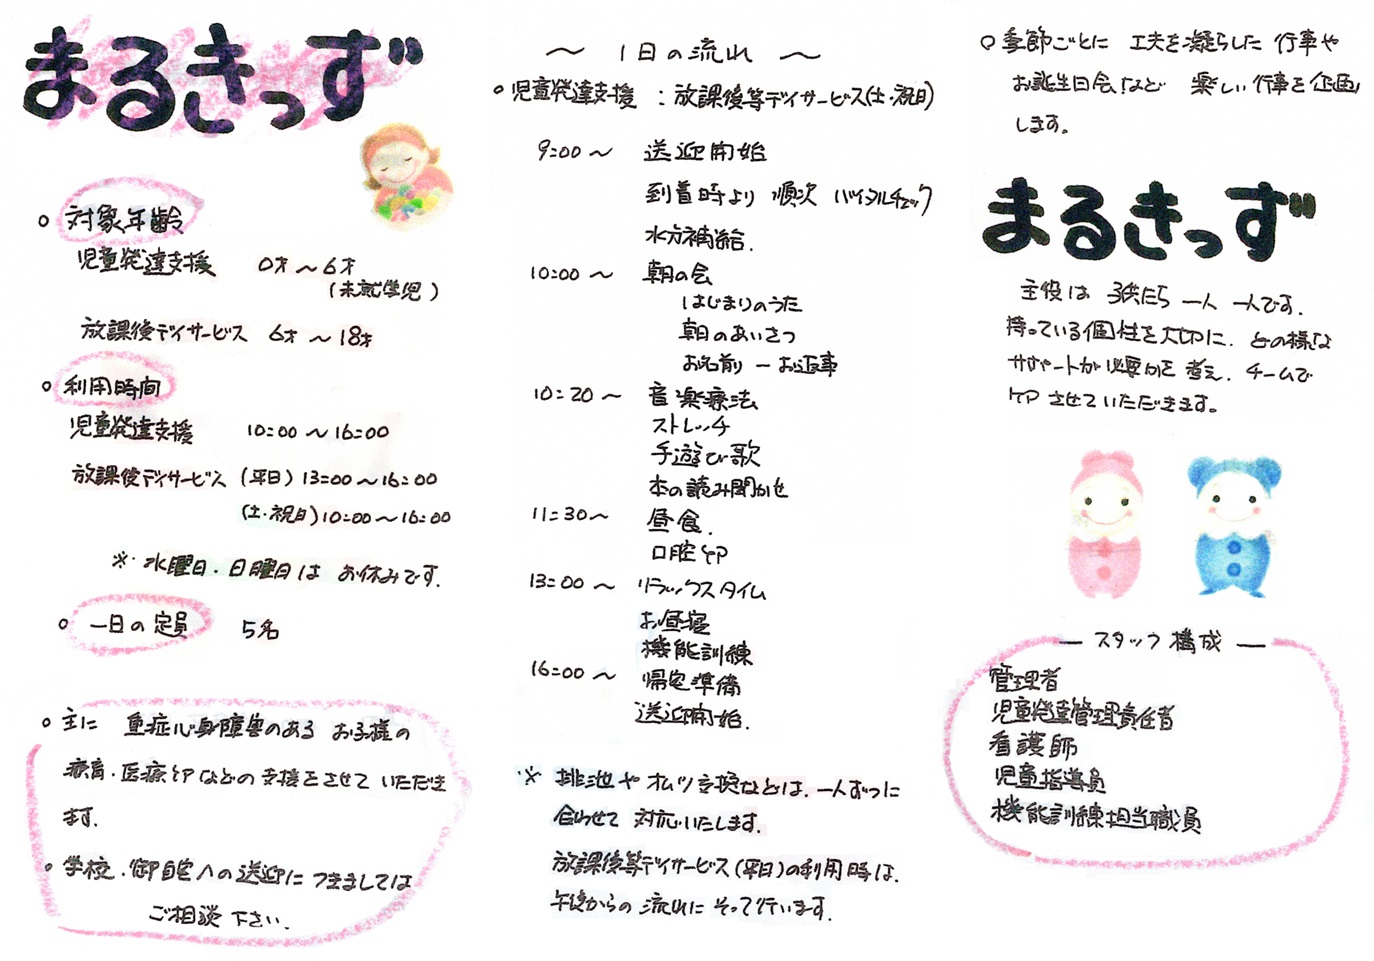 まるきっず
○ 対象年齢
児童発達支援 0才〜6才
(未就学児)
放課後デイサービス 6才〜18才
○ 利用時間
児童発達支援 10:00〜16:00
放課後デイサービス (平日) 13:00〜16:00
(土・祝日) 10:00〜16:00
※ 水曜日・日曜日は お休みです.
○ 一日の定員 5名
○ 主に 重症心身障害のある お子様の
療育・医療ケアなどの支援をさせて いただき
ます.
○ 学校・御自宅への送迎に つきましては
ご相談 下さい.
〜 1日の流れ 〜
○児童発達支援 : 放課後等デイサービス(土・祝日)
9:00〜 送迎開始
到着時より 順次 バイタルチェック
水分補給.
10:00〜 朝の会
はじまりのうた
朝のあいさつ
お名前 ー お返事
10:20〜 音楽療法
ストレッチ
手遊び歌
本の読み聞かせ
11:30〜 昼食.
口腔ケア
13:00〜 リラックスタイム
お昼寝
機能訓練
16:00〜 帰宅準備
送迎開始.
※ 排泄や オムツ交換などは、一人ずつに
合わせて 対応いたします.
放課後等デイサービス(平日)の利用時は、
午後からの 流れに そって行います.
○ 季節ごとに 工夫を凝らした 行事や
お誕生日会など 楽しい行事を企画
します。
まるきっず
主役は 子供たち 一人 一人です.
持っている個性を大切に、どの様な
サポートが必要かを 考え、チームで
ケアさせていただきます。
― スタッフ 構成 ―
管理者
児童発達管理責任者
看護師
児童指導員
機能訓練担当職員